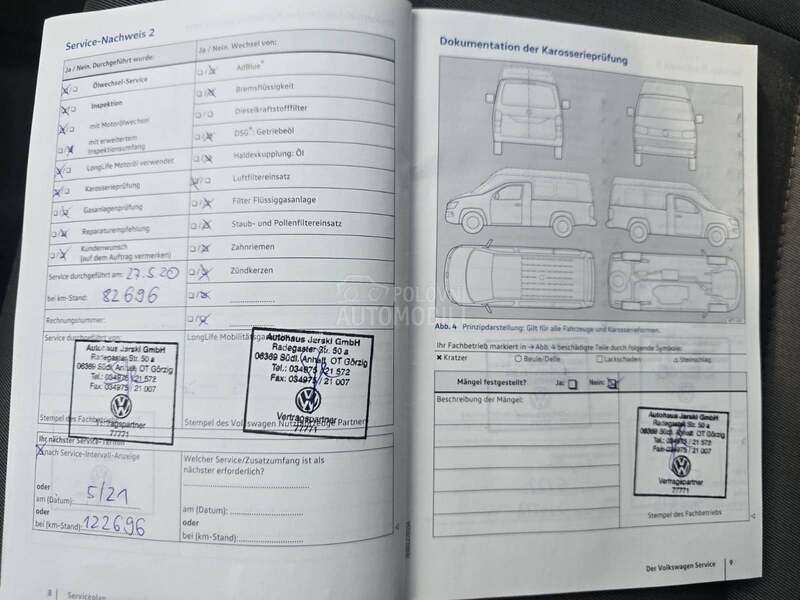 Service-Nachweis 2
Ja / Nein. Durchgeführt wurde:
Ja / Nein. Wechsel von:
Ölwechsel-Service
AdBlue®
Inspektion
Bremsflüssigkeit
mit Motorölwechsel
Dieselkraftstofffilter
mit erweitertem
Inspektionsumfang
DSG®: Getriebeöl
LongLife Motoröl verwendet
Haldexkupplung: Öl
Karosserieprüfung
Luftfiltereinsatz
Gasanlagenprüfung
Filter Flüssiggasanlage
Reparaturempfehlung
Staub- und Pollenfiltereinsatz
Kundenwunsch
(auf dem Auftrag vermerken)
Zahnriemen
Service durchgeführt am: 27.5.20
Zündkerzen
bei km-Stand: 82696
Rechnungsnummer:
Service durchgeführt von:
LongLife Mobilitätsgarantie
Autohaus Jarski GmbH
Radegaster Str. 50 a
06369 Südl. Anhalt OT Görzig
Tel.: 034975 / 21 572
Fax: 034975 / 21 007
Vertragspartner
77771
Stempel des Fachbetriebs
Autohaus Jarski GmbH
Radegaster Str. 50 a
06369 Südl. Anhalt OT Görzig
Tel.: 034975 / 21 572
Fax: 034975 / 21 007
Vertragspartner
77771
Stempel des Volkswagen Nutzfahrzeuge Partners
Ihr nächster Service-Termin
nach Service-Intervall-Anzeige
oder
am (Datum): 5/21
oder
bei (km-Stand): 122696
Welcher Service/Zusatzumfang ist als
nächster erforderlich?
am (Datum):
oder
bei (km-Stand):
8 Serviceplan
Dokumentation der Karosserieprüfung
Abb. 4 Prinzipdarstellung: Gilt für alle Fahrzeuge und Karosserieformen.
Ihr Fachbetrieb markiert in → Abb. 4 beschädigte Teile durch folgende Symbole:
Kratzer
Beule/Delle
Lackschaden
Steinschlag
Mängel festgestellt? Ja: Nein:
Beschreibung der Mängel:
Autohaus Jarski GmbH
Radegaster Str. 50 a
06369 Südl. Anhalt OT Görzig
Tel.: 034975 / 21 572
Fax: 034975 / 21 007
Vertragspartner
77771
Stempel des Fachbetriebs
Der Volkswagen Service 9
POLOVNI
AUTOMOBILI